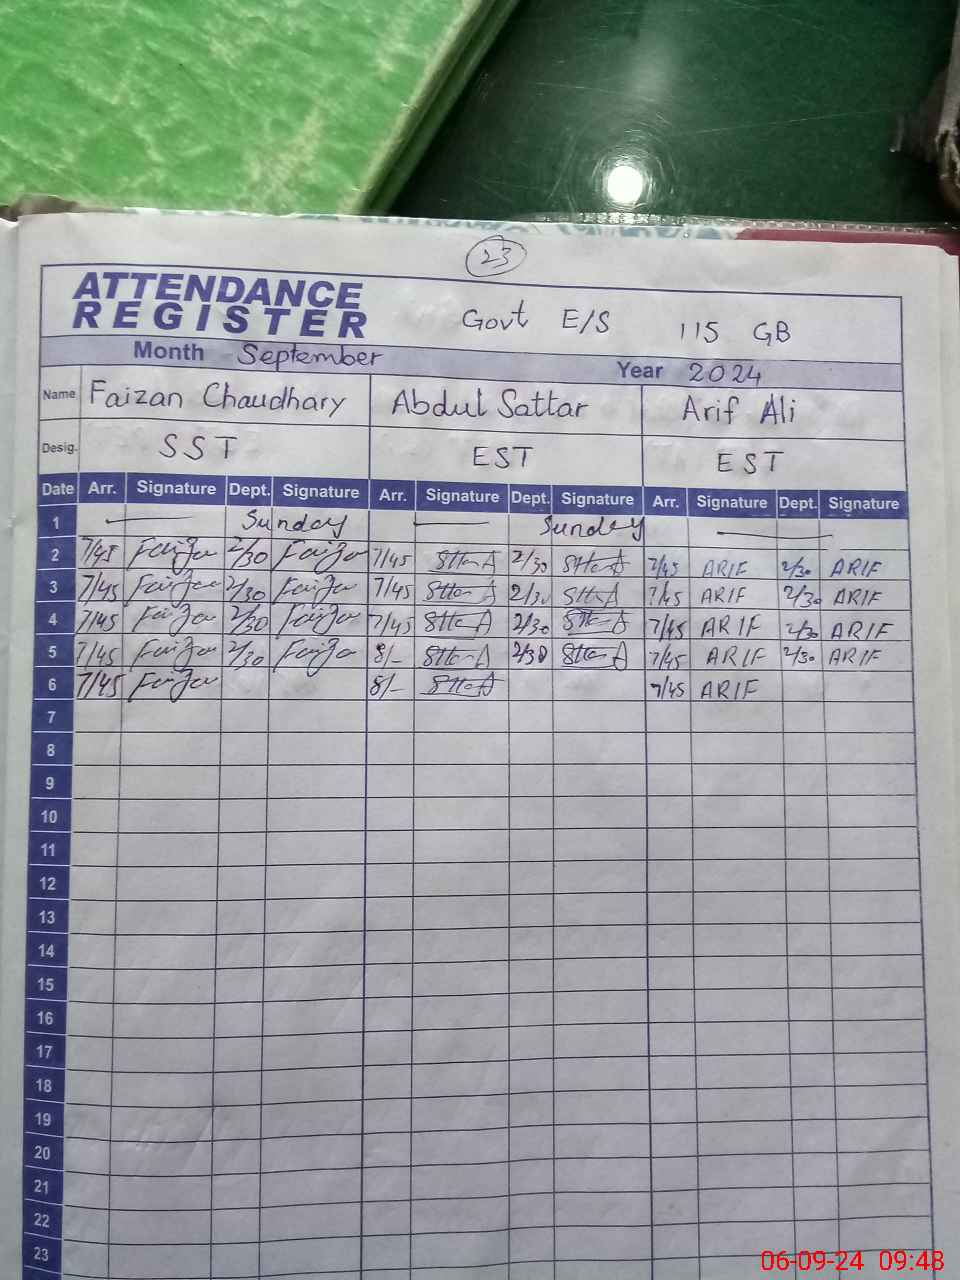 23
ATTENDANCE
REGISTER
Govt E/S 115 GB
Month September Year 2024
Name Faizan Chaudhary Abdul Sattar Arif Ali
Desig. SST EST EST
Date Arr. Signature Dept. Signature Arr. Signature Dept. Signature Arr. Signature Dept. Signature
1 Sunday Sunday
2 7/45 Faizan 2/30 Faizan 7/45 2/30 7/45 ARIF 2/30 ARIF
3 7/45 Faizan 2/30 Faizan 7/45 2/30 7/45 ARIF 2/30 ARIF
4 7/45 Faizan 2/30 Faizan 7/45 2/30 7/45 ARIF 2/30 ARIF
5 7/45 Faizan 2/30 Faizan 8/- 2/30 7/45 ARIF 2/30 ARIF
6 7/45 Faizan 8/- 7/45 ARIF
7
8
9
10
11
12
13
14
15
16
17
18
19
20
21
22
23
06-09-24 09:48